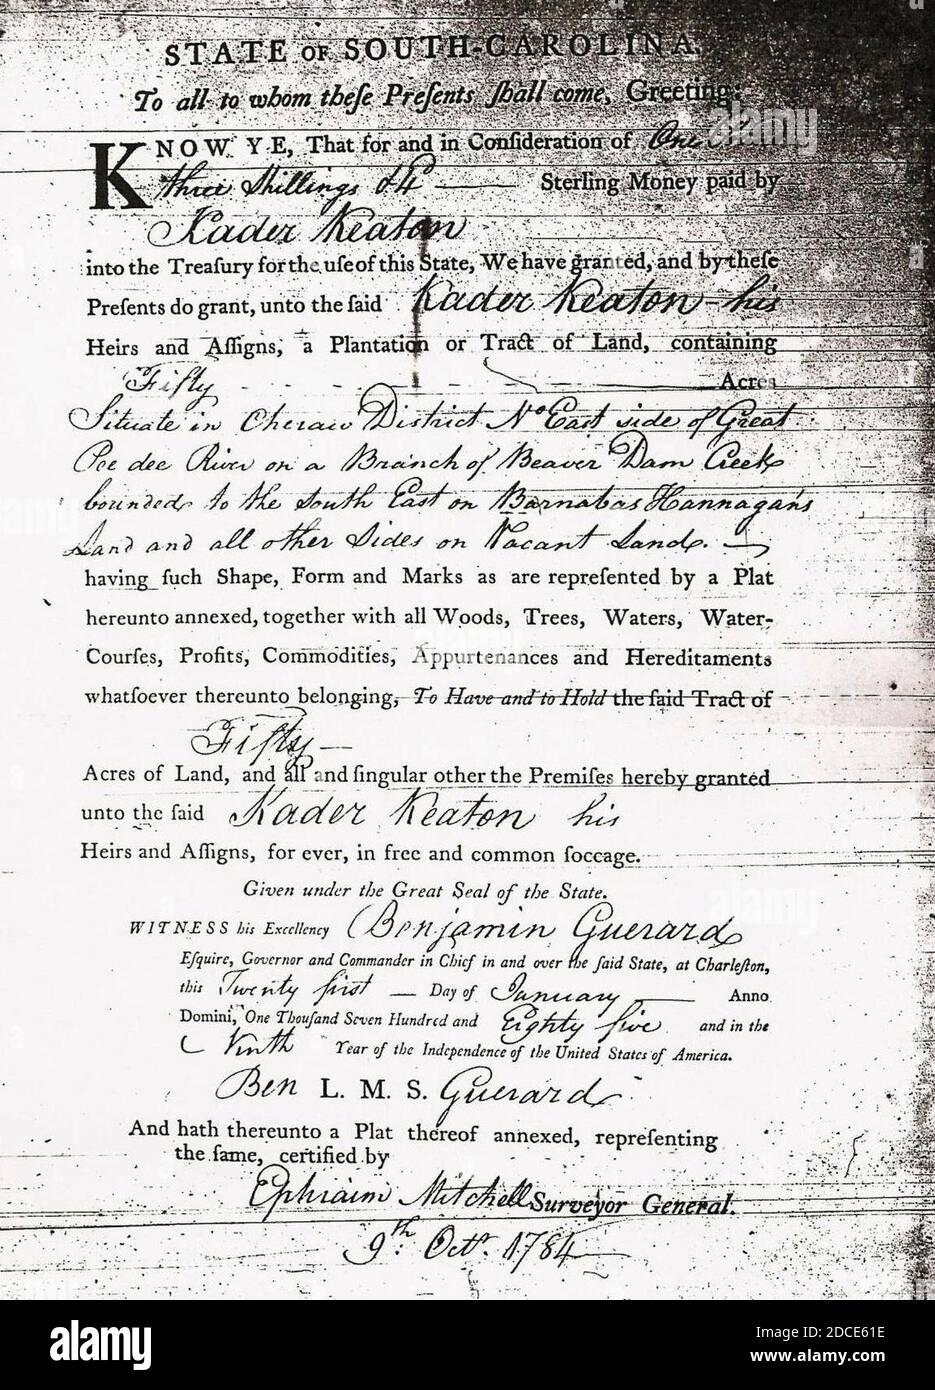 STATE OF SOUTH-CAROLINA.
To all to whom theſe Preſents ſhall come, Greeting:
KNOW YE, That for and in Conſideration of One
three Shillings & 4d Sterling Money paid by
Kader Keaton
into the Treaſury for the uſe of this State, We have granted, and by theſe
Preſents do grant, unto the ſaid Kader Keaton his
Heirs and Aſſigns, a Plantation or Tract of Land, containing
Fifty Acres
Situate in Cheraw District No East side of Great
Pee dee River on a Branch of Beaver Dam Creek
bounded to the South East on Barnabas Hannagan's
Land and all other Sides on Vacant Land.
having ſuch Shape, Form and Marks as are repreſented by a Plat
hereunto annexed, together with all Woods, Trees, Waters, Water-
Courſes, Profits, Commodities, Appurtenances and Hereditaments
whatſoever thereunto belonging, To Have and to Hold the ſaid Tract of
Fifty
Acres of Land, and all and ſingular other the Premiſes hereby granted
unto the ſaid Kader Keaton his
Heirs and Aſſigns, for ever, in free and common ſoccage.
Given under the Great Seal of the State.
WITNESS his Excellency Benjamin Guerard
Eſquire, Governor and Commander in Chief in and over the ſaid State, at Charleſton,
this Twenty first Day of January Anno
Domini, One Thouſand Seven Hundred and Eighty five and in the
Ninth Year of the Independence of the United States of America.
Ben L. M. S. Guerard
And hath thereunto a Plat thereof annexed, repreſenting
the ſame, certified by
Ephraim Mitchell Surveyor General.
9th. Octr. 1784
alamy
Image ID: 2DCE61E
www.alamy.com